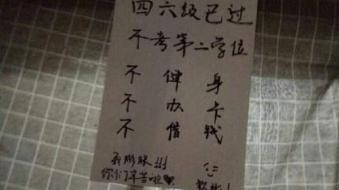 四六级已过
不考第二学位
不 健 身
不 办 卡
不 借 钱
你们辛苦啦♥